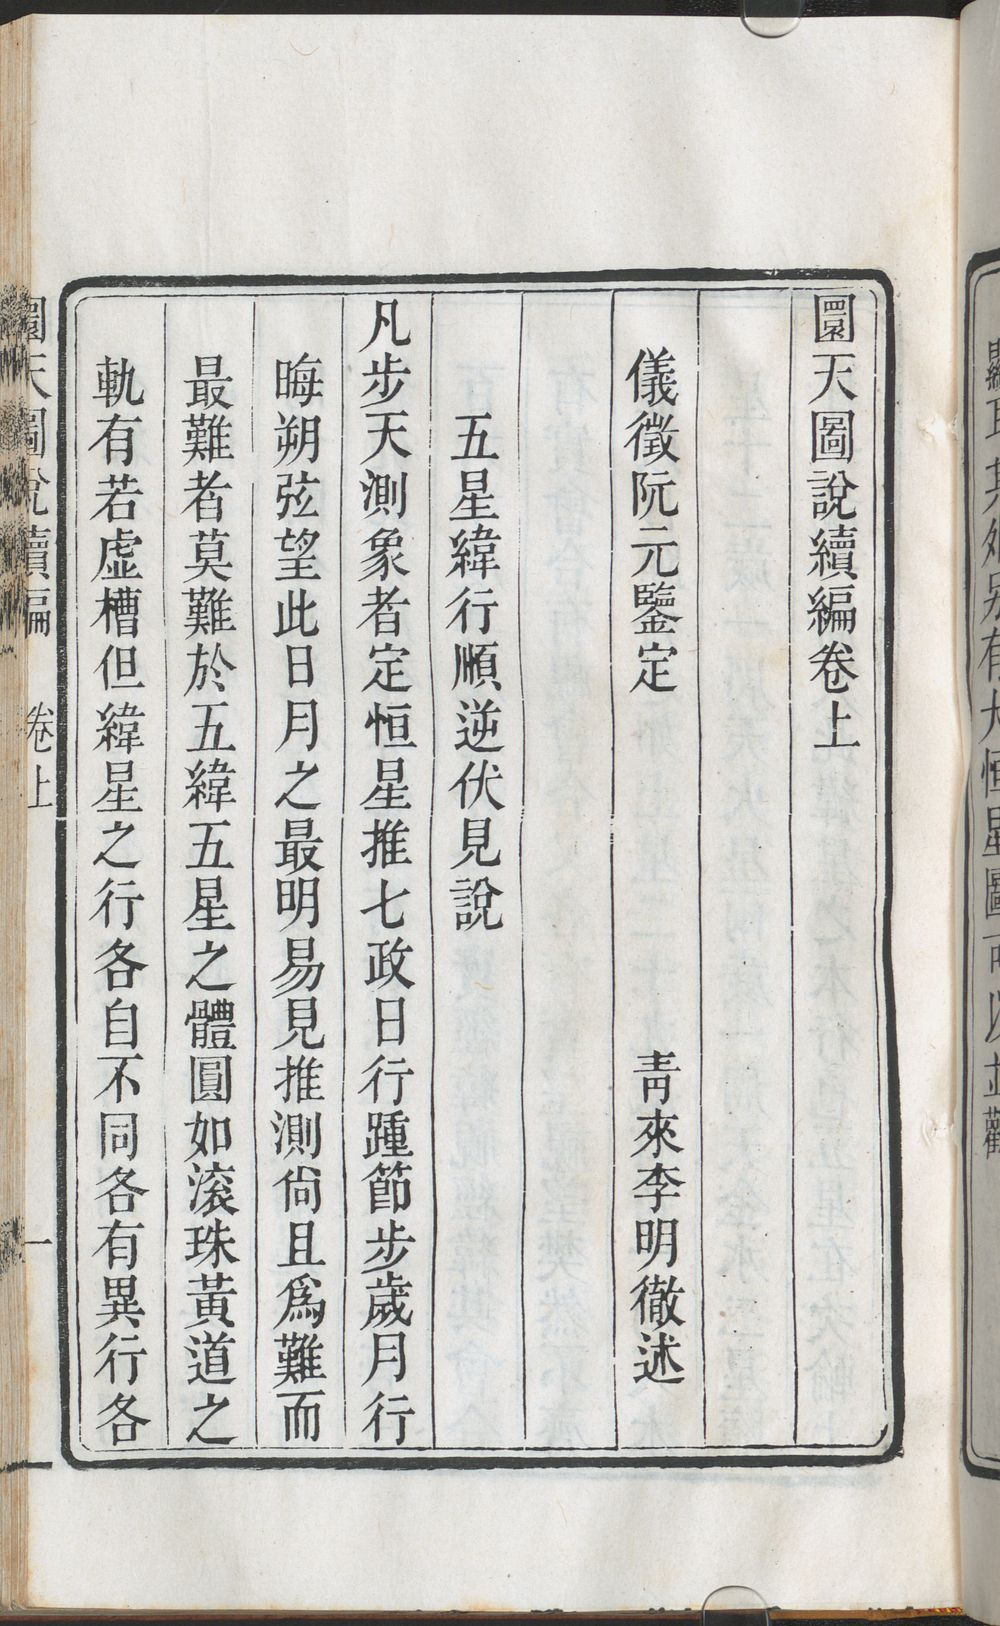 圜天圖說續編卷上
儀徵阮元鑒定
青來李明徹述
五星緯行順逆伏見說
凡步天測象者定恒星推七政日行踵節步歲月行
晦朔弦望此日月之最明易見推測尙且爲難而
最難者莫難於五緯五星之體圓如滚珠黃道之
軌有若虛槽但緯星之行各自不同各有異行各
圜天圖說續編
卷上
一